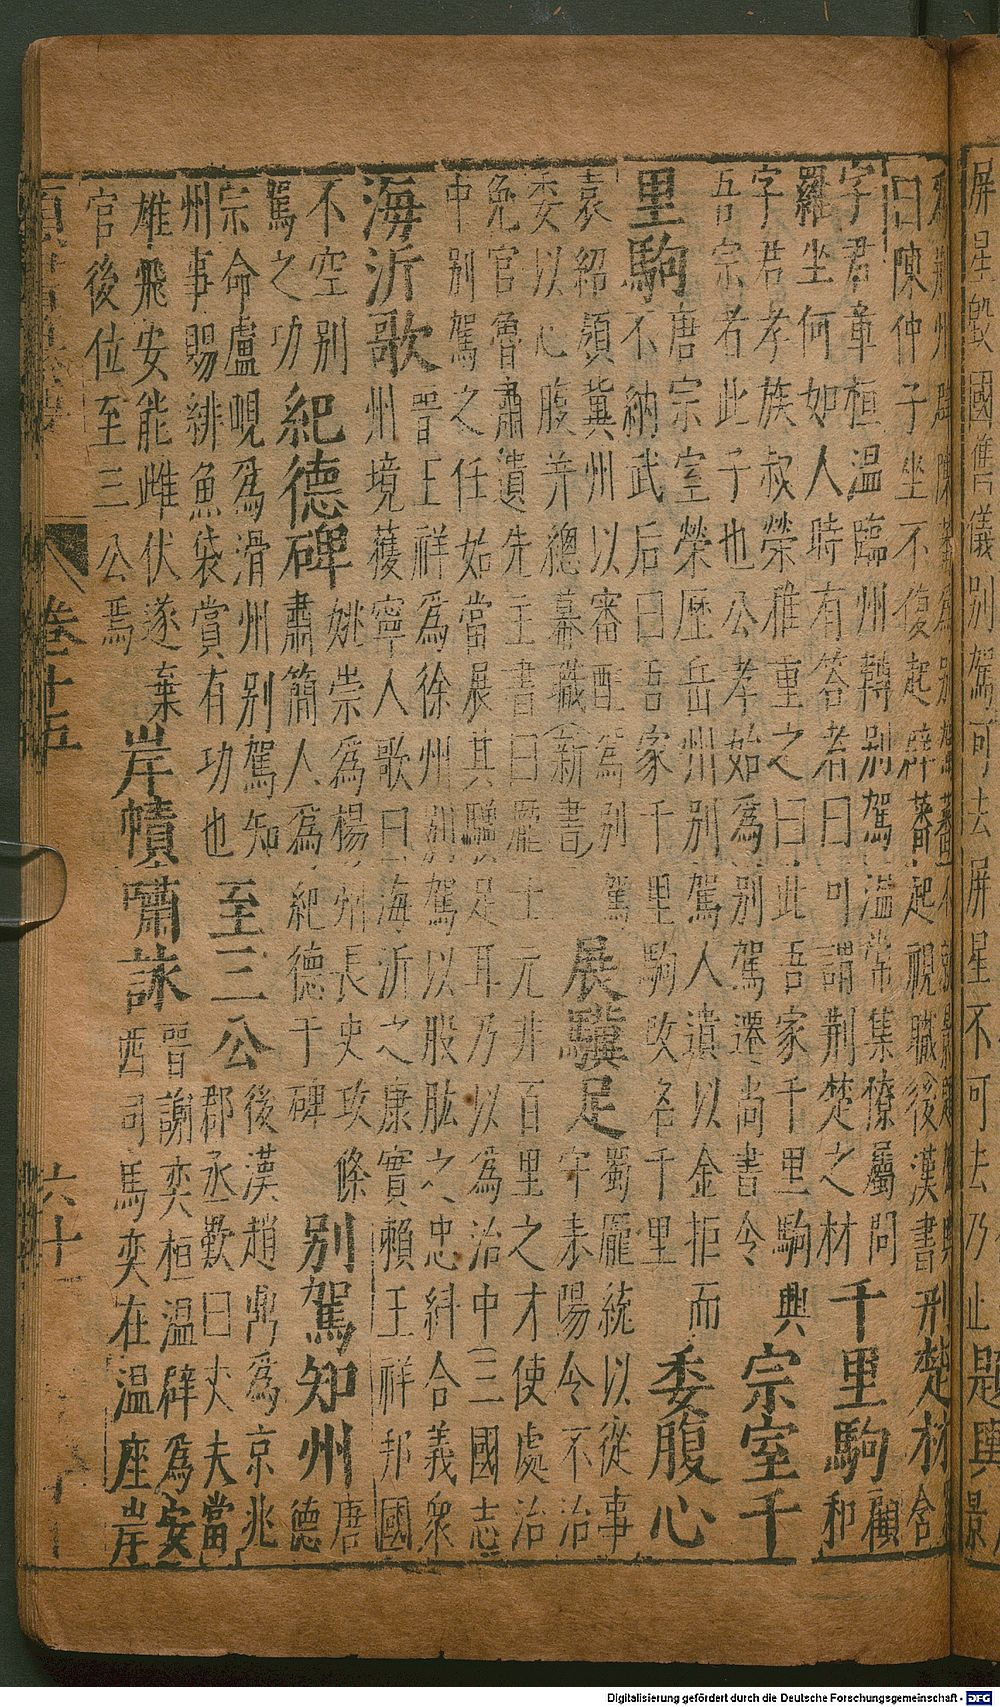 屏星毀國舊儀別駕可去屏星不可去乃止題輿景
曰陳仲子坐不復起辟蕃起視職後漢書荊楚材羅含
字君章桓溫臨州轉別駕溫常集僚屬問
羅坐何如人時有答者曰可謂荊楚之材
千里駒顧和
字君孝族叔榮雅重之曰此吾家千里駒興
吾宗者此子也公孝始為別駕遷尚書令
宗室千
里駒
唐宗室榮歷岳州別駕人遺以金拒而
不納武后曰吾家千里駒改名千里
委腹心
袁紹領冀州以審配為別駕
委以心腹并總幕職新書
展驥足
蜀龐統以從事
守耒陽令不治
免官魯肅遺先主書曰龐士元非百里之才使處治
中別駕之任始當展其驥足耳乃以為治中三國志
海沂歌
晉王祥為徐州別駕以股肱之忠糾合義眾
州境獲寧人歌曰海沂之康實賴王祥邦國
不空別
駕之功
紀德碑
姚崇為楊州長史政條
肅簡人為紀德于碑
別駕知州
唐德
宗命盧峴為滑州別駕知
州事賜緋魚袋賞有功也
至三公
後漢趙為京兆
郡丞歎曰丈夫當
雄飛安能雌伏遂棄
官後位至三公焉
岸幘嘯詠
晉謝奕桓溫辟為安
西司馬奕在溫座岸
卷十五
六十
Digitalisierung gefördert durch die Deutsche Forschungsgemeinschaft - DFG